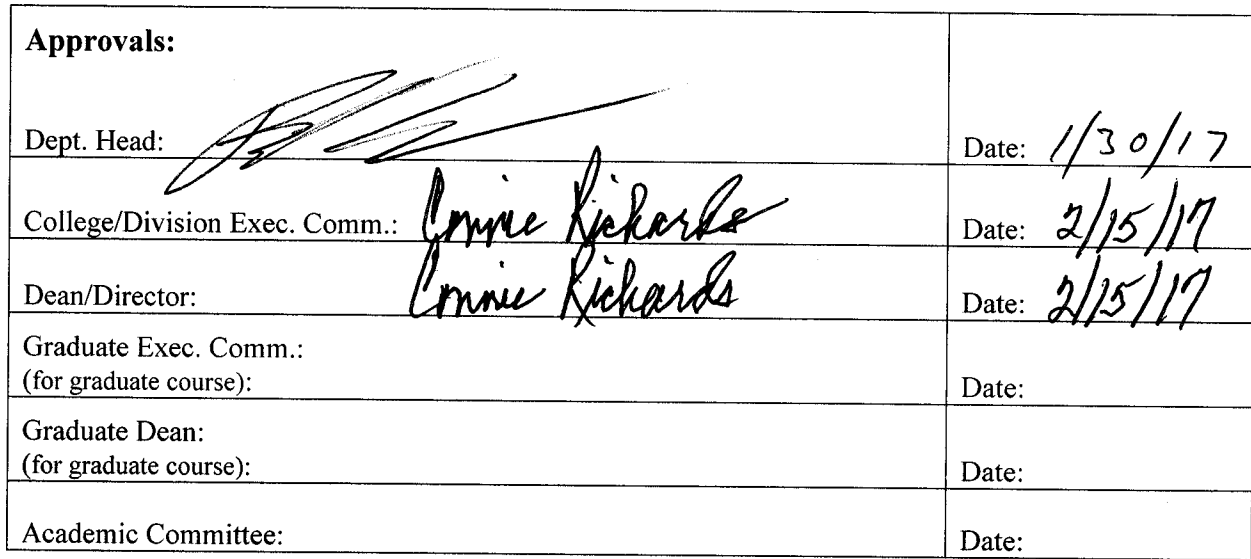 Approvals:
Dept. Head: Date: 1/30/17
College/Division Exec. Comm.: Connie Richards Date: 2/15/17
Dean/Director: Connie Richards Date: 2/15/17
Graduate Exec. Comm.:
(for graduate course): Date:
Graduate Dean:
(for graduate course): Date:
Academic Committee: Date: